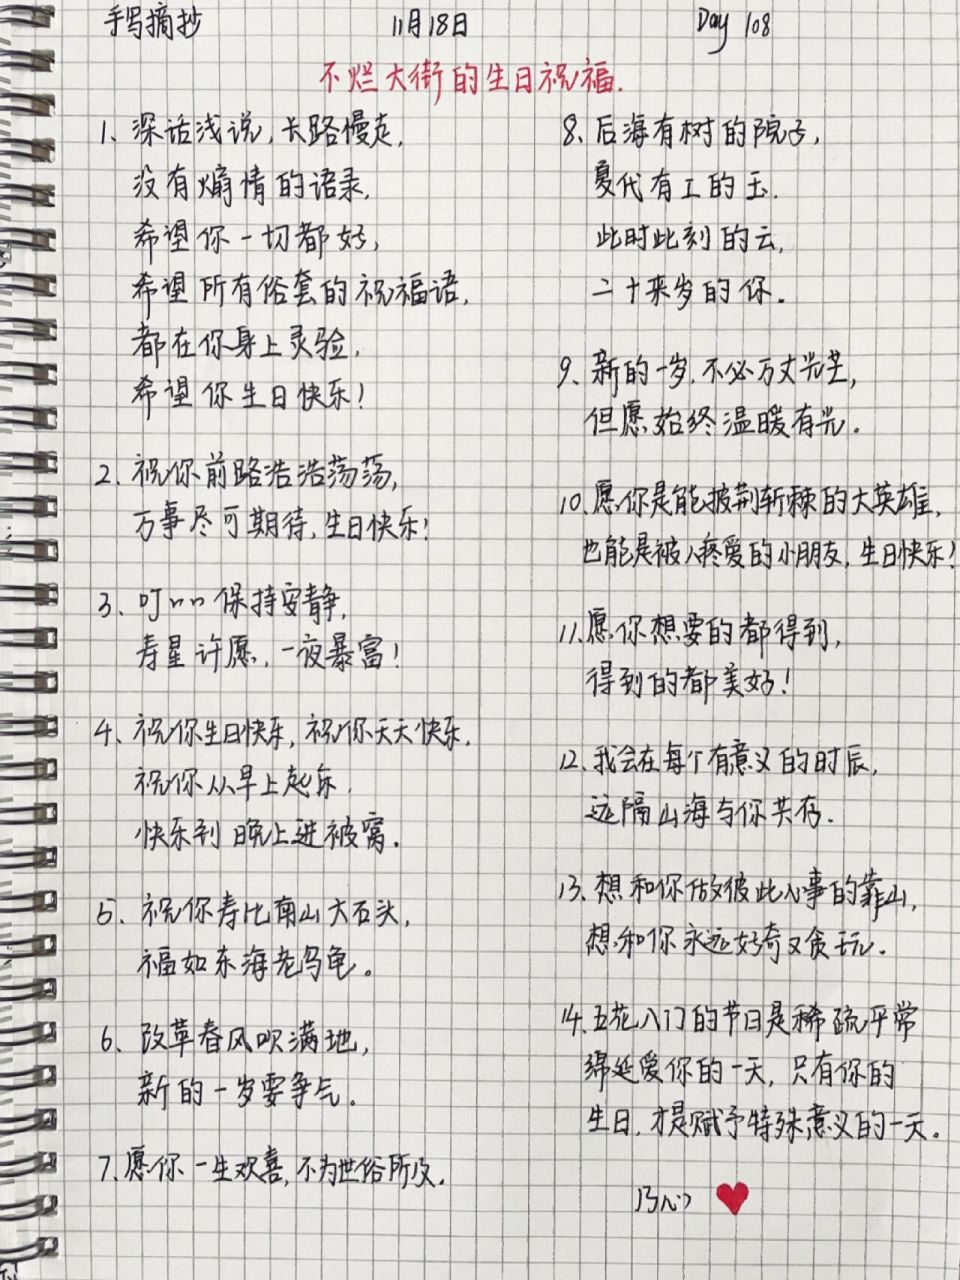 手写摘抄 11月18日 Day 108
不烂大街的生日祝福.
1、深话浅说,长路慢走,
没有煽情的语录,
希望你一切都好,
希望所有俗套的祝福语,
都在你身上灵验,
希望你生日快乐!
2、祝你前路浩浩荡荡,
万事尽可期待,生日快乐!
3、叮叮叮保持安静,
寿星许愿,一夜暴富!
4、祝你生日快乐,祝你天天快乐,
祝你从早上起床,
快乐到晚上进被窝.
5、祝你寿比南山大石头,
福如东海老乌龟。
6、改革春风吹满地,
新的一岁要争气。
7、愿你一生欢喜,不为世俗所及.
8、后海有树的院子,
夏代有工的玉,
此时此刻的云,
二十来岁的你.
9、新的一岁,不必万丈光芒,
但愿始终温暖有光.
10、愿你是能披荆斩棘的大英雄,
也能是被人疼爱的小朋友,生日快乐!
11、愿你想要的都得到,
得到的都美好!
12、我会在每个有意义的时辰,
远隔山海与你共存.
13、想和你做彼此心事的靠山,
想和你永远好奇又贪玩.
14、五花八门的节日是稀疏平常
绵延爱你的一天,只有你的
生日,才是赋予特殊意义的一天。